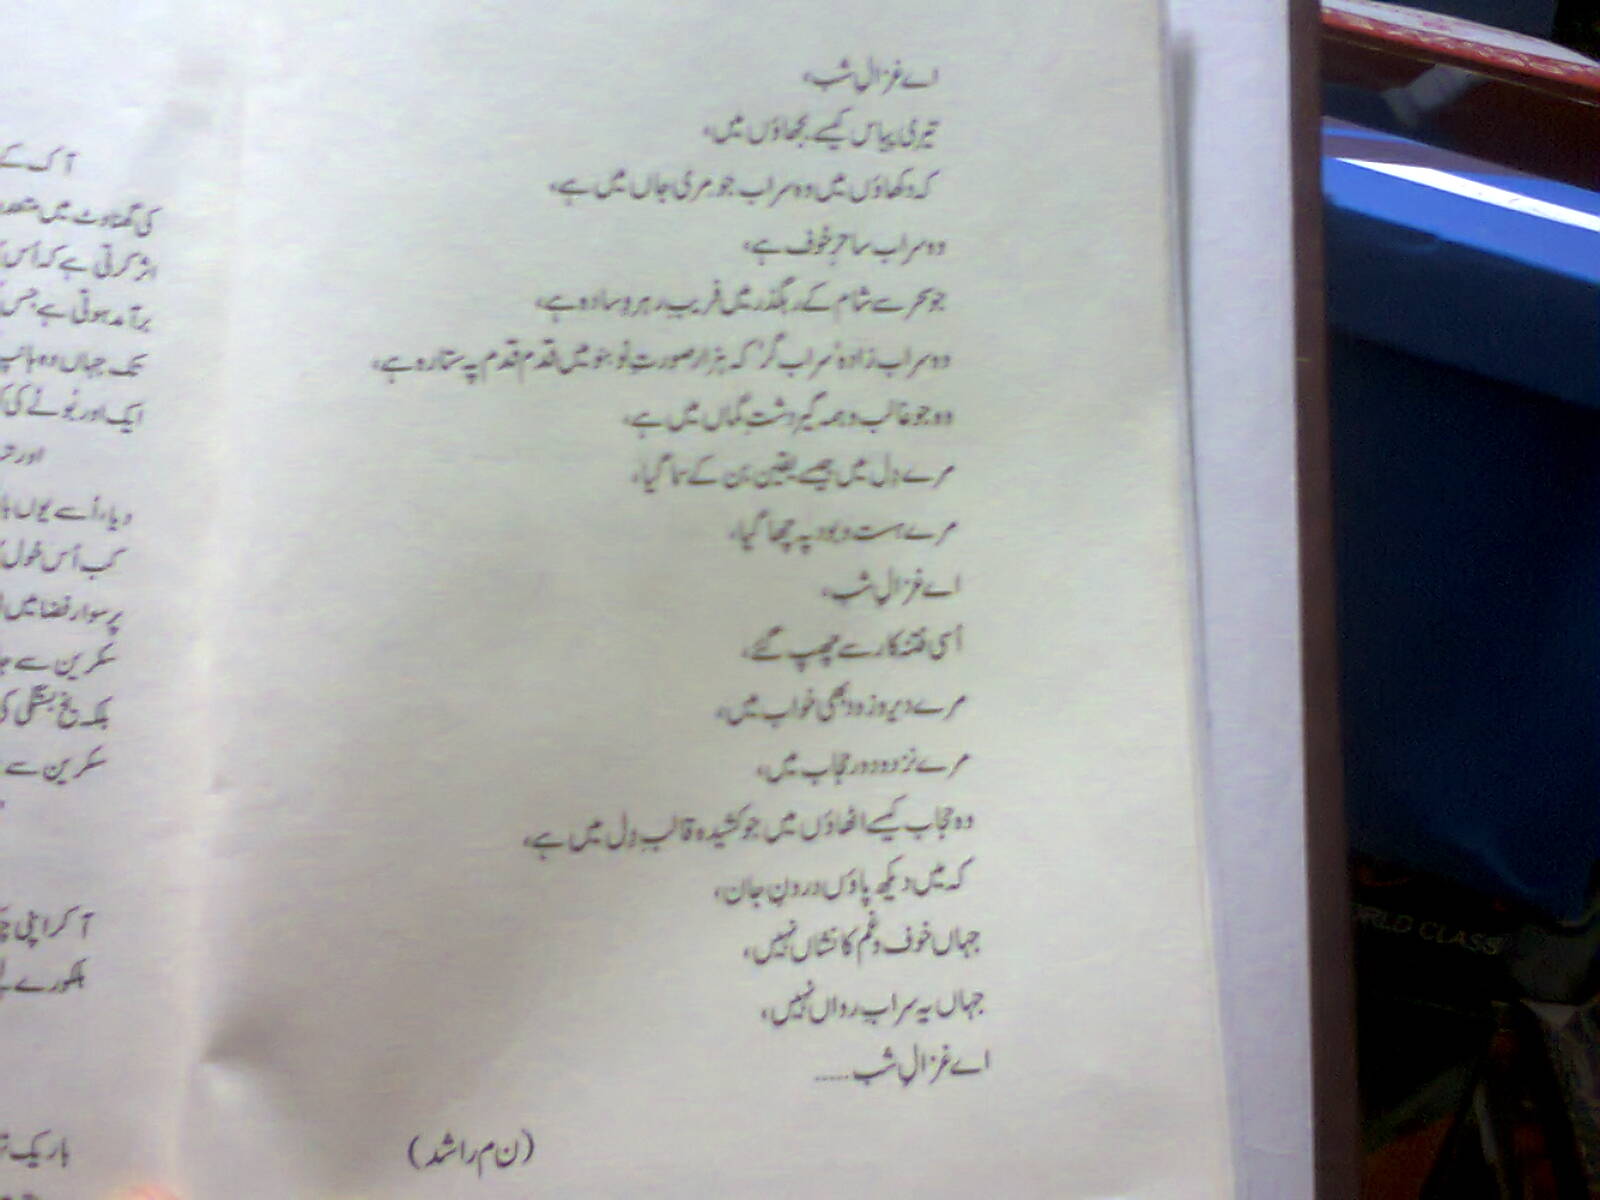 اے غزالِ شب،
تیری پیاس کیسے بجھاؤں میں،
کہ دکھاؤں میں وہ سراب جو مری جاں میں ہے،
وہ سراب ساحرِ خوف ہے،
جو سحر سے شام کے رہگذر میں فریبِ رہروِ سادہ ہے،
وہ سراب زادہ، سراب گر، کہ ہزار صورتِ نو بنو میں قدم قدم پہ ستادہ ہے،
وہ جو غالب و ہمہ گیر دشتِ گماں میں ہے،
مرے دل میں جیسے یقین بن کے سما گیا،
مرے ہست و بود پہ چھا گیا،
اے غزالِ شب،
اُسی فتنہ کار سے چھپ گئے،
مرے دیر و زود بھی خواب میں،
مرے نزد و دور حجاب میں،
وہ حجاب کیسے اٹھاؤں میں جو کشیدہ قالبِ دل میں ہے،
کہ میں دیکھ پاؤں درونِ جان،
جہاں خوف و غم کا نشاں نہیں،
جہاں یہ سراب رواں نہیں،
اے غزالِ شب .....
(ن م راشد)
آ ک کے
کی گھناوٹ میں
اثر کرتی ہے کہ اُس
برآمد ہوتی ہے جس
تک جہاں وہ
ایک اور نُونے کی
اور
دیا، اُسے یوں
کب اُس خول
پر سوار فضا میں
سکرین سے
بلکہ یخ بستگی کی
سکرین سے
آ کر اپنی
ہلکورے
باریک
WORLD CLASS